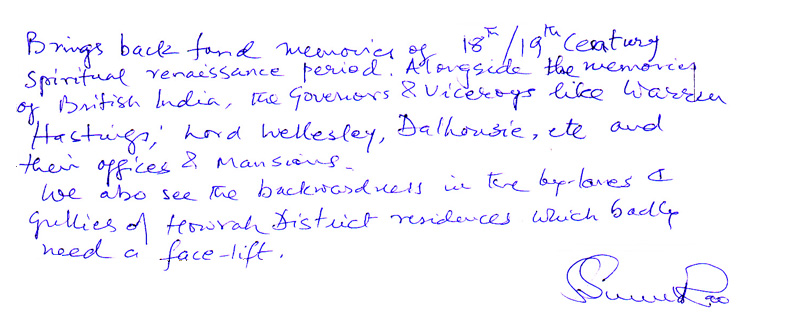 Brings back fond memories of 18th/19th Century
spiritual renaissance period. Alongside the memories
of British India, the Governors & Viceroys like Warren
Hastings, Lord Wellesley, Dalhousie, etc and
their offices & Mansions.
We also see the backwardness in the by-lanes &
gullies of Howrah District residences which badly
need a face-lift.